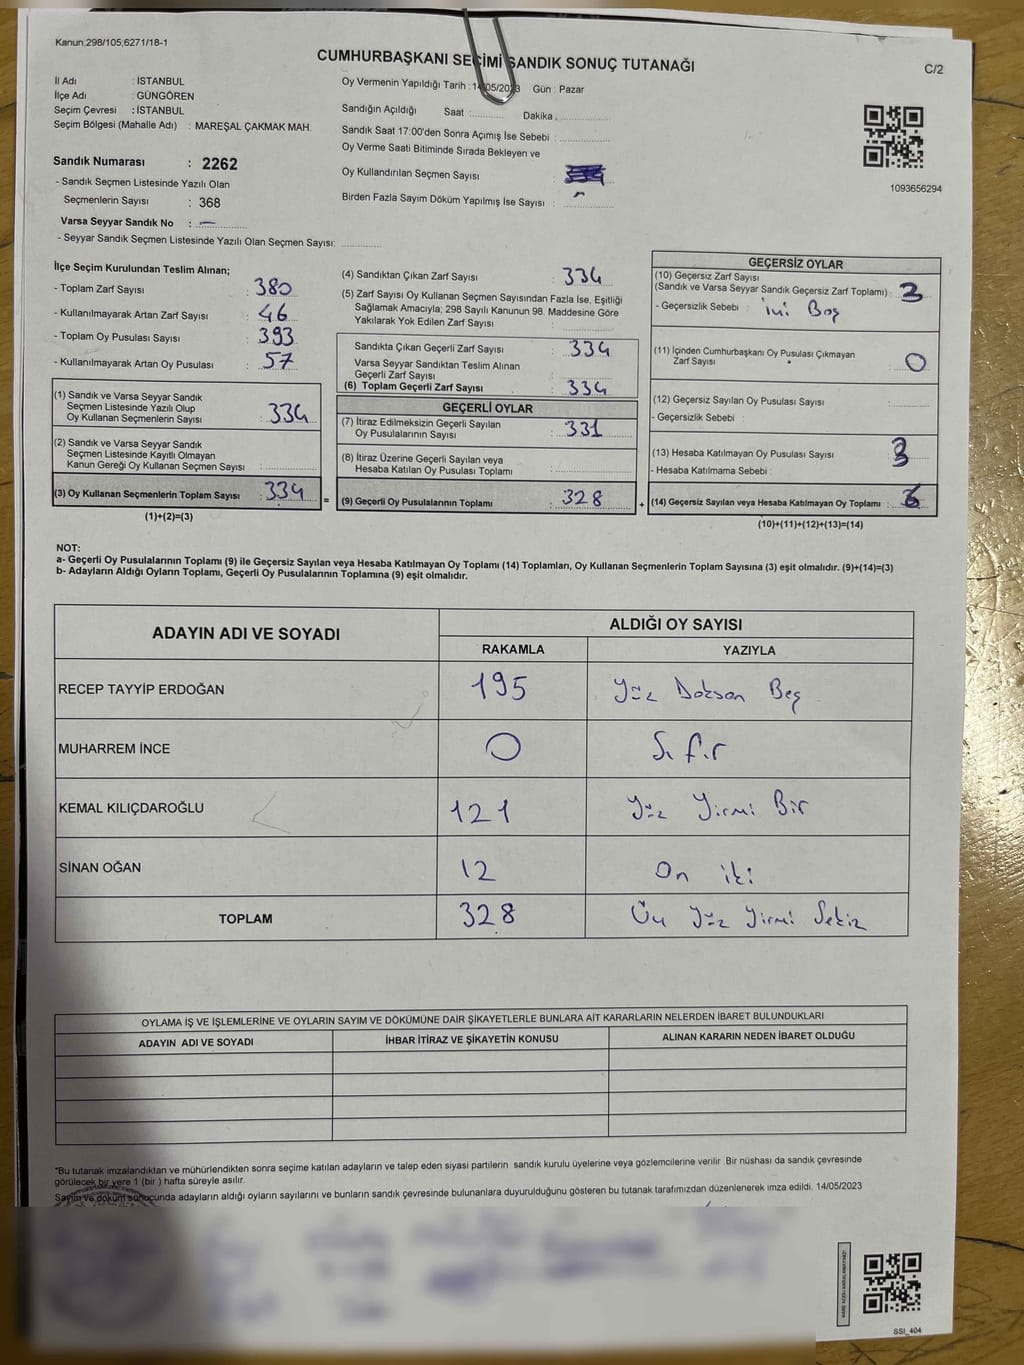 Kanun:298/105;6271/18-1
CUMHURBAŞKANI SEÇİMİ SANDIK SONUÇ TUTANAĞI
C/2
İl Adı : İSTANBUL
İlçe Adı : GÜNGÖREN
Seçim Çevresi : İSTANBUL
Seçim Bölgesi (Mahalle Adı) : MAREŞAL ÇAKMAK MAH.
Oy Vermenin Yapıldığı Tarih : 14/05/2023 Gün : Pazar
Sandığın Açıldığı Saat : Dakika :
Sandık Saat 17:00'den Sonra Açımış İse Sebebi :
Oy Verme Saati Bitiminde Sırada Bekleyen ve
Oy Kullandırılan Seçmen Sayısı :
Birden Fazla Sayım Döküm Yapılmış İse Sayısı : -
1093656294
Sandık Numarası : 2262
- Sandık Seçmen Listesinde Yazılı Olan
Seçmenlerin Sayısı : 368
Varsa Seyyar Sandık No : -
- Seyyar Sandık Seçmen Listesinde Yazılı Olan Seçmen Sayısı:
İlçe Seçim Kurulundan Teslim Alınan;
- Toplam Zarf Sayısı : 380
- Kullanılmayarak Artan Zarf Sayısı : 46
- Toplam Oy Pusulası Sayısı : 393
- Kullanılmayarak Artan Oy Pusulası : 57
(1) Sandık ve Varsa Seyyar Sandık
Seçmen Listesinde Yazılı Olup
Oy Kullanan Seçmenlerin Sayısı : 334
(2) Sandık ve Varsa Seyyar Sandık
Seçmen Listesinde Kayıtlı Olmayan
Kanun Gereği Oy Kullanan Seçmen Sayısı :
(3) Oy Kullanan Seçmenlerin Toplam Sayısı : 334 =
(1)+(2)=(3)
(4) Sandıktan Çıkan Zarf Sayısı : 334
(5) Zarf Sayısı Oy Kullanan Seçmen Sayısından Fazla İse, Eşitliği
Sağlamak Amacıyla; 298 Sayılı Kanunun 98. Maddesine Göre
Yakılarak Yok Edilen Zarf Sayısı :
Sandıkta Çıkan Geçerli Zarf Sayısı : 334
Varsa Seyyar Sandıktan Teslim Alınan
Geçerli Zarf Sayısı :
(6) Toplam Geçerli Zarf Sayısı : 334
GEÇERLİ OYLAR
(7) İtiraz Edilmeksizin Geçerli Sayılan
Oy Pusulalarının Sayısı : 331
(8) İtiraz Üzerine Geçerli Sayılan veya
Hesaba Katılan Oy Pusulası Toplamı :
(9) Geçerli Oy Pusulalarının Toplamı : 328 +
GEÇERSİZ OYLAR
(10) Geçersiz Zarf Sayısı
(Sandık ve Varsa Seyyar Sandık Geçersiz Zarf Toplamı) : 3
- Geçersizlik Sebebi : içi Boş
(11) İçinden Cumhurbaşkanı Oy Pusulası Çıkmayan
Zarf Sayısı : 0
(12) Geçersiz Sayılan Oy Pusulası Sayısı :
- Geçersizlik Sebebi :
(13) Hesaba Katılmayan Oy Pusulası Sayısı : 3
- Hesaba Katılmama Sebebi :
(14) Geçersiz Sayılan veya Hesaba Katılmayan Oy Toplamı : 6
(10)+(11)+(12)+(13)=(14)
NOT:
a- Geçerli Oy Pusulalarının Toplamı (9) ile Geçersiz Sayılan veya Hesaba Katılmayan Oy Toplamı (14) Toplamları, Oy Kullanan Seçmenlerin Toplam Sayısına (3) eşit olmalıdır. (9)+(14)=(3)
b- Adayların Aldığı Oyların Toplamı, Geçerli Oy Pusulalarının Toplamına (9) eşit olmalıdır.
ADAYIN ADI VE SOYADI ALDIĞI OY SAYISI
RAKAMLA YAZIYLA
RECEP TAYYİP ERDOĞAN 195 Yüz Doksan Beş
MUHARREM İNCE 0 Sıfır
KEMAL KILIÇDAROĞLU 121 Yüz Yirmi Bir
SİNAN OĞAN 12 On iki
TOPLAM 328 Üç Yüz Yirmi Sekiz
OYLAMA İŞ VE İŞLEMLERİNE VE OYLARIN SAYIM VE DÖKÜMÜNE DAİR ŞİKAYETLERLE BUNLARA AİT KARARLARIN NELERDEN İBARET BULUNDUKLARI
ADAYIN ADI VE SOYADI İHBAR İTİRAZ VE ŞİKAYETİN KONUSU ALINAN KARARIN NEDEN İBARET OLDUĞU
*Bu tutanak imzalandıktan ve mühürlendikten sonra seçime katılan adayların ve talep eden siyasi partilerin sandık kurulu üyelerine veya gözlemcilerine verilir. Bir nüshası da sandık çevresinde
görülecek bir yere 1 (bir ) hafta süreyle asılır.
Sayım ve döküm sonucunda adayların aldığı oyların sayılarını ve bunların sandık çevresinde bulunanlara duyurulduğunu gösteren bu tutanak tarafımızdan düzenlenerek imza edildi. 14/05/2023
SSI_404